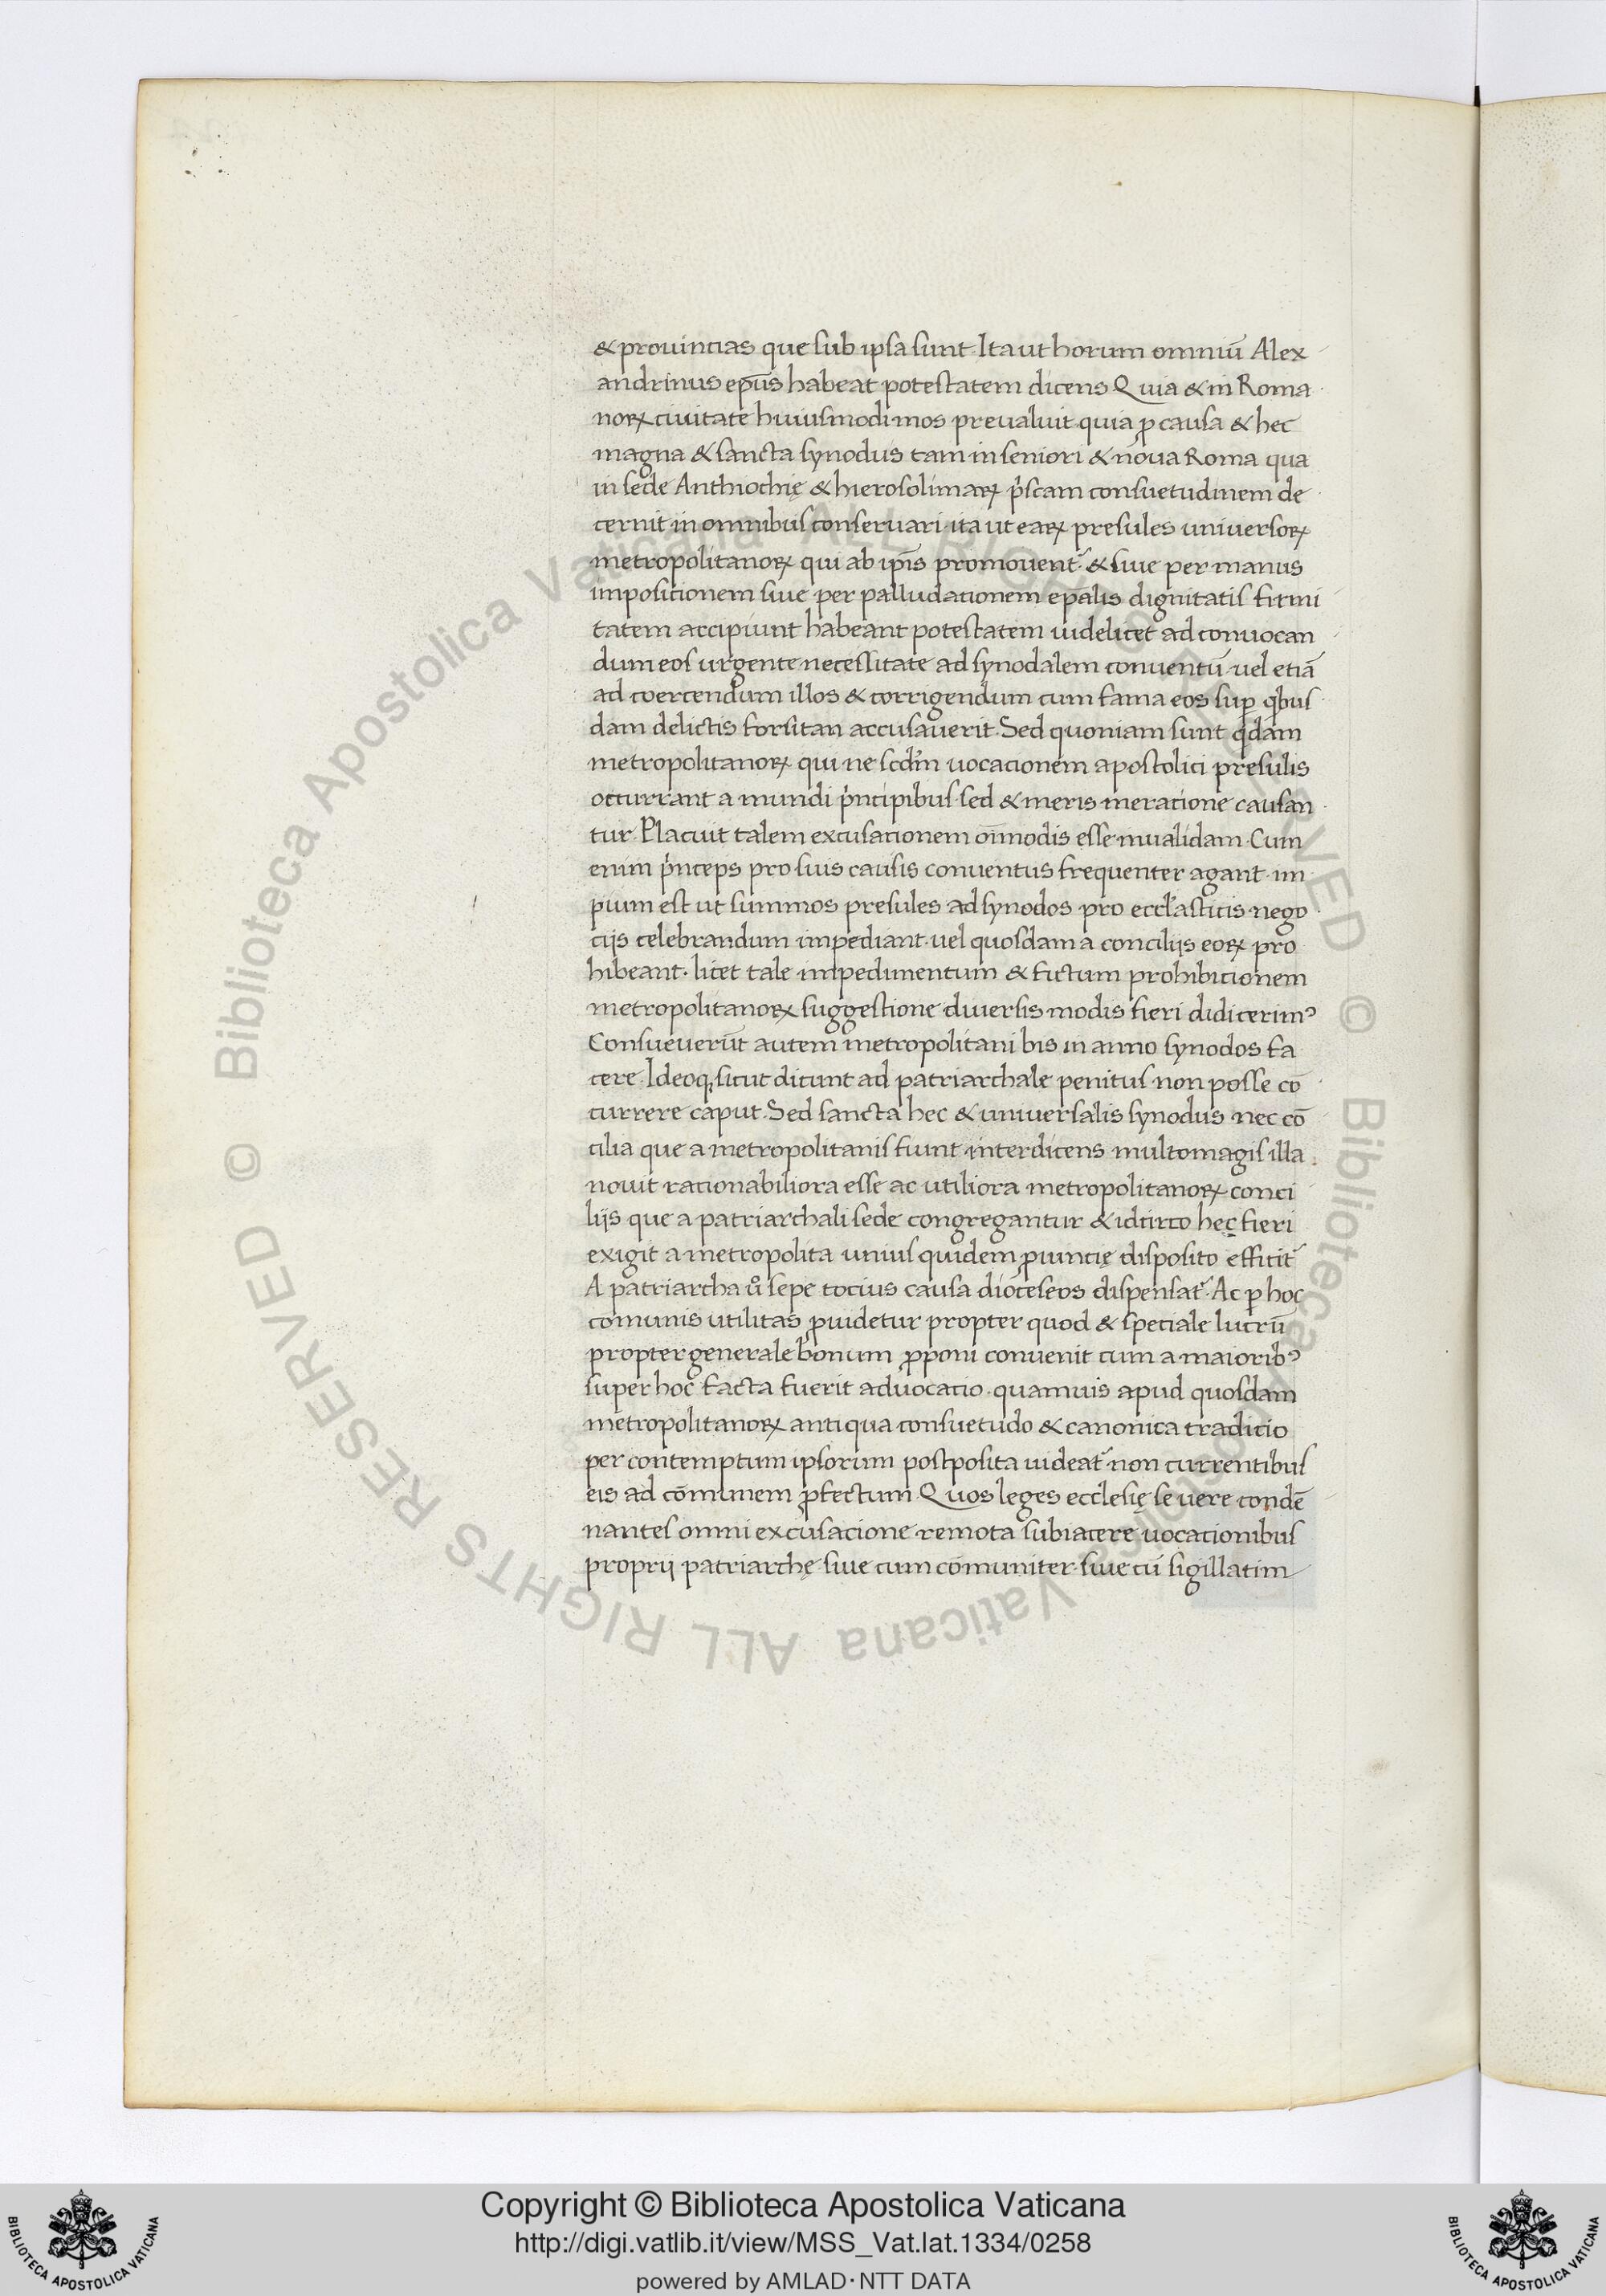 & prouincias que sub ipsa sunt. Ita ut horum omniū Alex
andrinus ep̄us habeat potestatem dicens Quia & in Roma
noꝝ ciuitate huiusmodi mos preualuit quia ꝓ causa & hec
magna & sancta synodus tam in seniori & noua Roma qua
in sede Anthiochię & hierosolimaꝝ p̓scam consuetudinem de
cernit in omnibus conseruari ita ut eaꝝ presules uniuersoꝝ
metropolitanoꝝ qui ab ip̄is promouent᷑ & siue per manus
impositionem siue per palludationem ep̄alis dignitatis firmi
tatem accipiunt habeant potestatem uidelicet ad conuocan
dum eos urgente necessitate ad synodalem conuentū uel etiā
ad coercendum illos & corrigendum cum fama eos suꝑ qͥbus
dam delictis forsitan accusauerit. Sed quoniam sunt qͥdam
metropolitanoꝝ qui ne scd̓m uocacionem apostolici presulis
occurrant a mundi p̓ncipibus sed & meris meratione causan
tur. Placuit talem excusacionem om̄modis esse inualidam. Cum
enim p̓nceps pro suis causis conuentus frequenter agant im
pium est ut summos presules ad synodos pro eccl̓asticis nego
cijs celebrandum impediant uel quosdam a concilijs eoꝝ pro
hibeant. licet tale impedimentum & fictum prohibicionem
metropolitanoꝝ suggestione diuersis modis fieri didicerimꝰ
Consueuerūt autem metropolitani bis in anno synodos fa
cere. Ideoqꝫ sicut dicunt ad patriarchale penitus non posse cō
currere caput. Sed sancta hec & uniuersalis synodus nec cō
cilia que a metropolitanis fiunt interdicens multomagis illa
nouit racionabiliora esse ac utiliora metropolitanoꝝ conci
lijs que a patriarchali sede congregantur & idcirco hec fieri
exigit a metropolita unius quidem ꝓuincię disposito efficit᷑
A patriarcha uͦ sepe tocius causa dioceseos dispensat᷑. Ac ꝑ hoc
comunis utilitas ꝓuidetur propter quod & speciale lucrū
propter generale bonum ꝓponi conuenit cum a maioribꝰ
super hoc facta fuerit aduocatio quamuis apud quosdam
metropolitanoꝝ antiqua consuetudo & canonica tradicio
per contemptum ipsorum postposita uideat᷑ non currentibus
eis ad cōmunem ꝓfectum. Quos leges ecclesię seuere condē
nantes omni excusacione remota subiacere uocacionibus
proprij patriarchę siue cum cōmuniter siue cū sigillatim
© Biblioteca Apostolica Vaticana ALL RIGHTS RESERVED © Biblioteca Apostolica Vaticana ALL RIGHTS RESERVED
Copyright © Biblioteca Apostolica Vaticana
http://digi.vatlib.it/view/MSS_Vat.lat.1334/0258
powered by AMLAD·NTT DATA
BIBLIOTECA APOSTOLICA VATICANA
BIBLIOTECA APOSTOLICA VATICANA